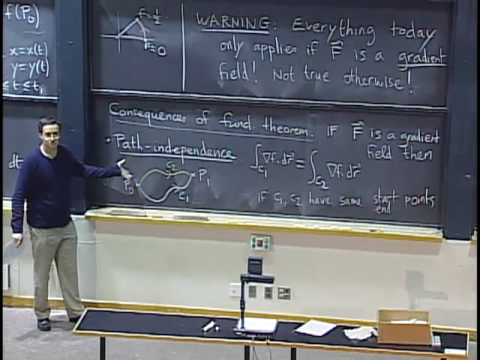 f(P₀)
x=x(t)
y=y(t)
≤t≤t₁
dt
f=½
f=0
WARNING: Everything today
only applies if F⃗ is a gradient
field! Not true otherwise!
Consequences of fund. theorem: IF F⃗ is a gradient
field then
• Path-independence ∫_C₁ ∇f·dr⃗ = ∫_C₂ ∇f·dr⃗
C₂
P₀ P₁
C₁
if C₁, C₂ have same start points
end